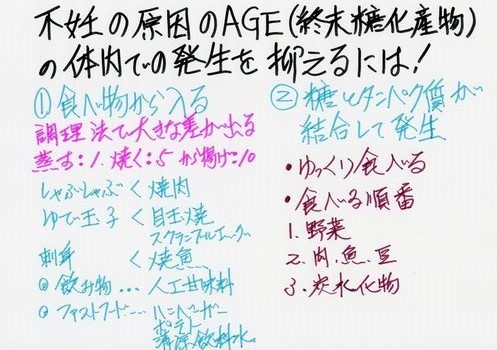 不妊の原因のAGE(終末糖化産物)
の体内での発生を抑えるには!
①食べ物から入る
調理法で大きな差が出る
蒸す:1.焼く:5 から揚げ:10
しゃぶしゃぶ < 焼肉
ゆで玉子 < 目玉焼
スクランブルエッグ
刺身 < 焼魚
◎飲み物… 人工甘味料
◎ファストフード… ハンバーガー
ポテト
清涼飲料水
②糖とタンパク質が
結合して発生
・ゆっくり食べる
・食べる順番
1.野菜
2.肉.魚.豆
3.炭水化物